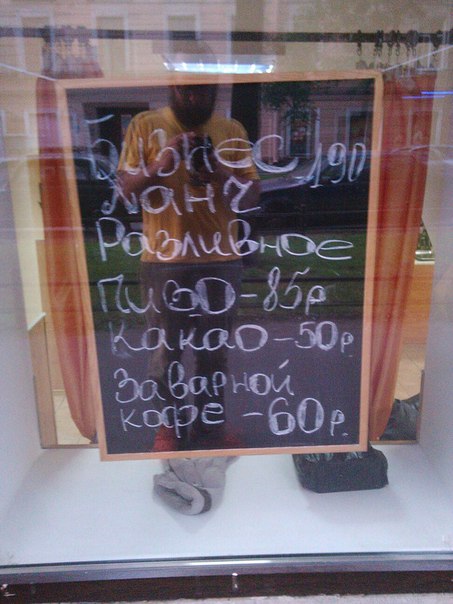 Бизнес 190
Ланч
Разливное
пиво-85р
Какао-50р
Заварной
кофе-60р.